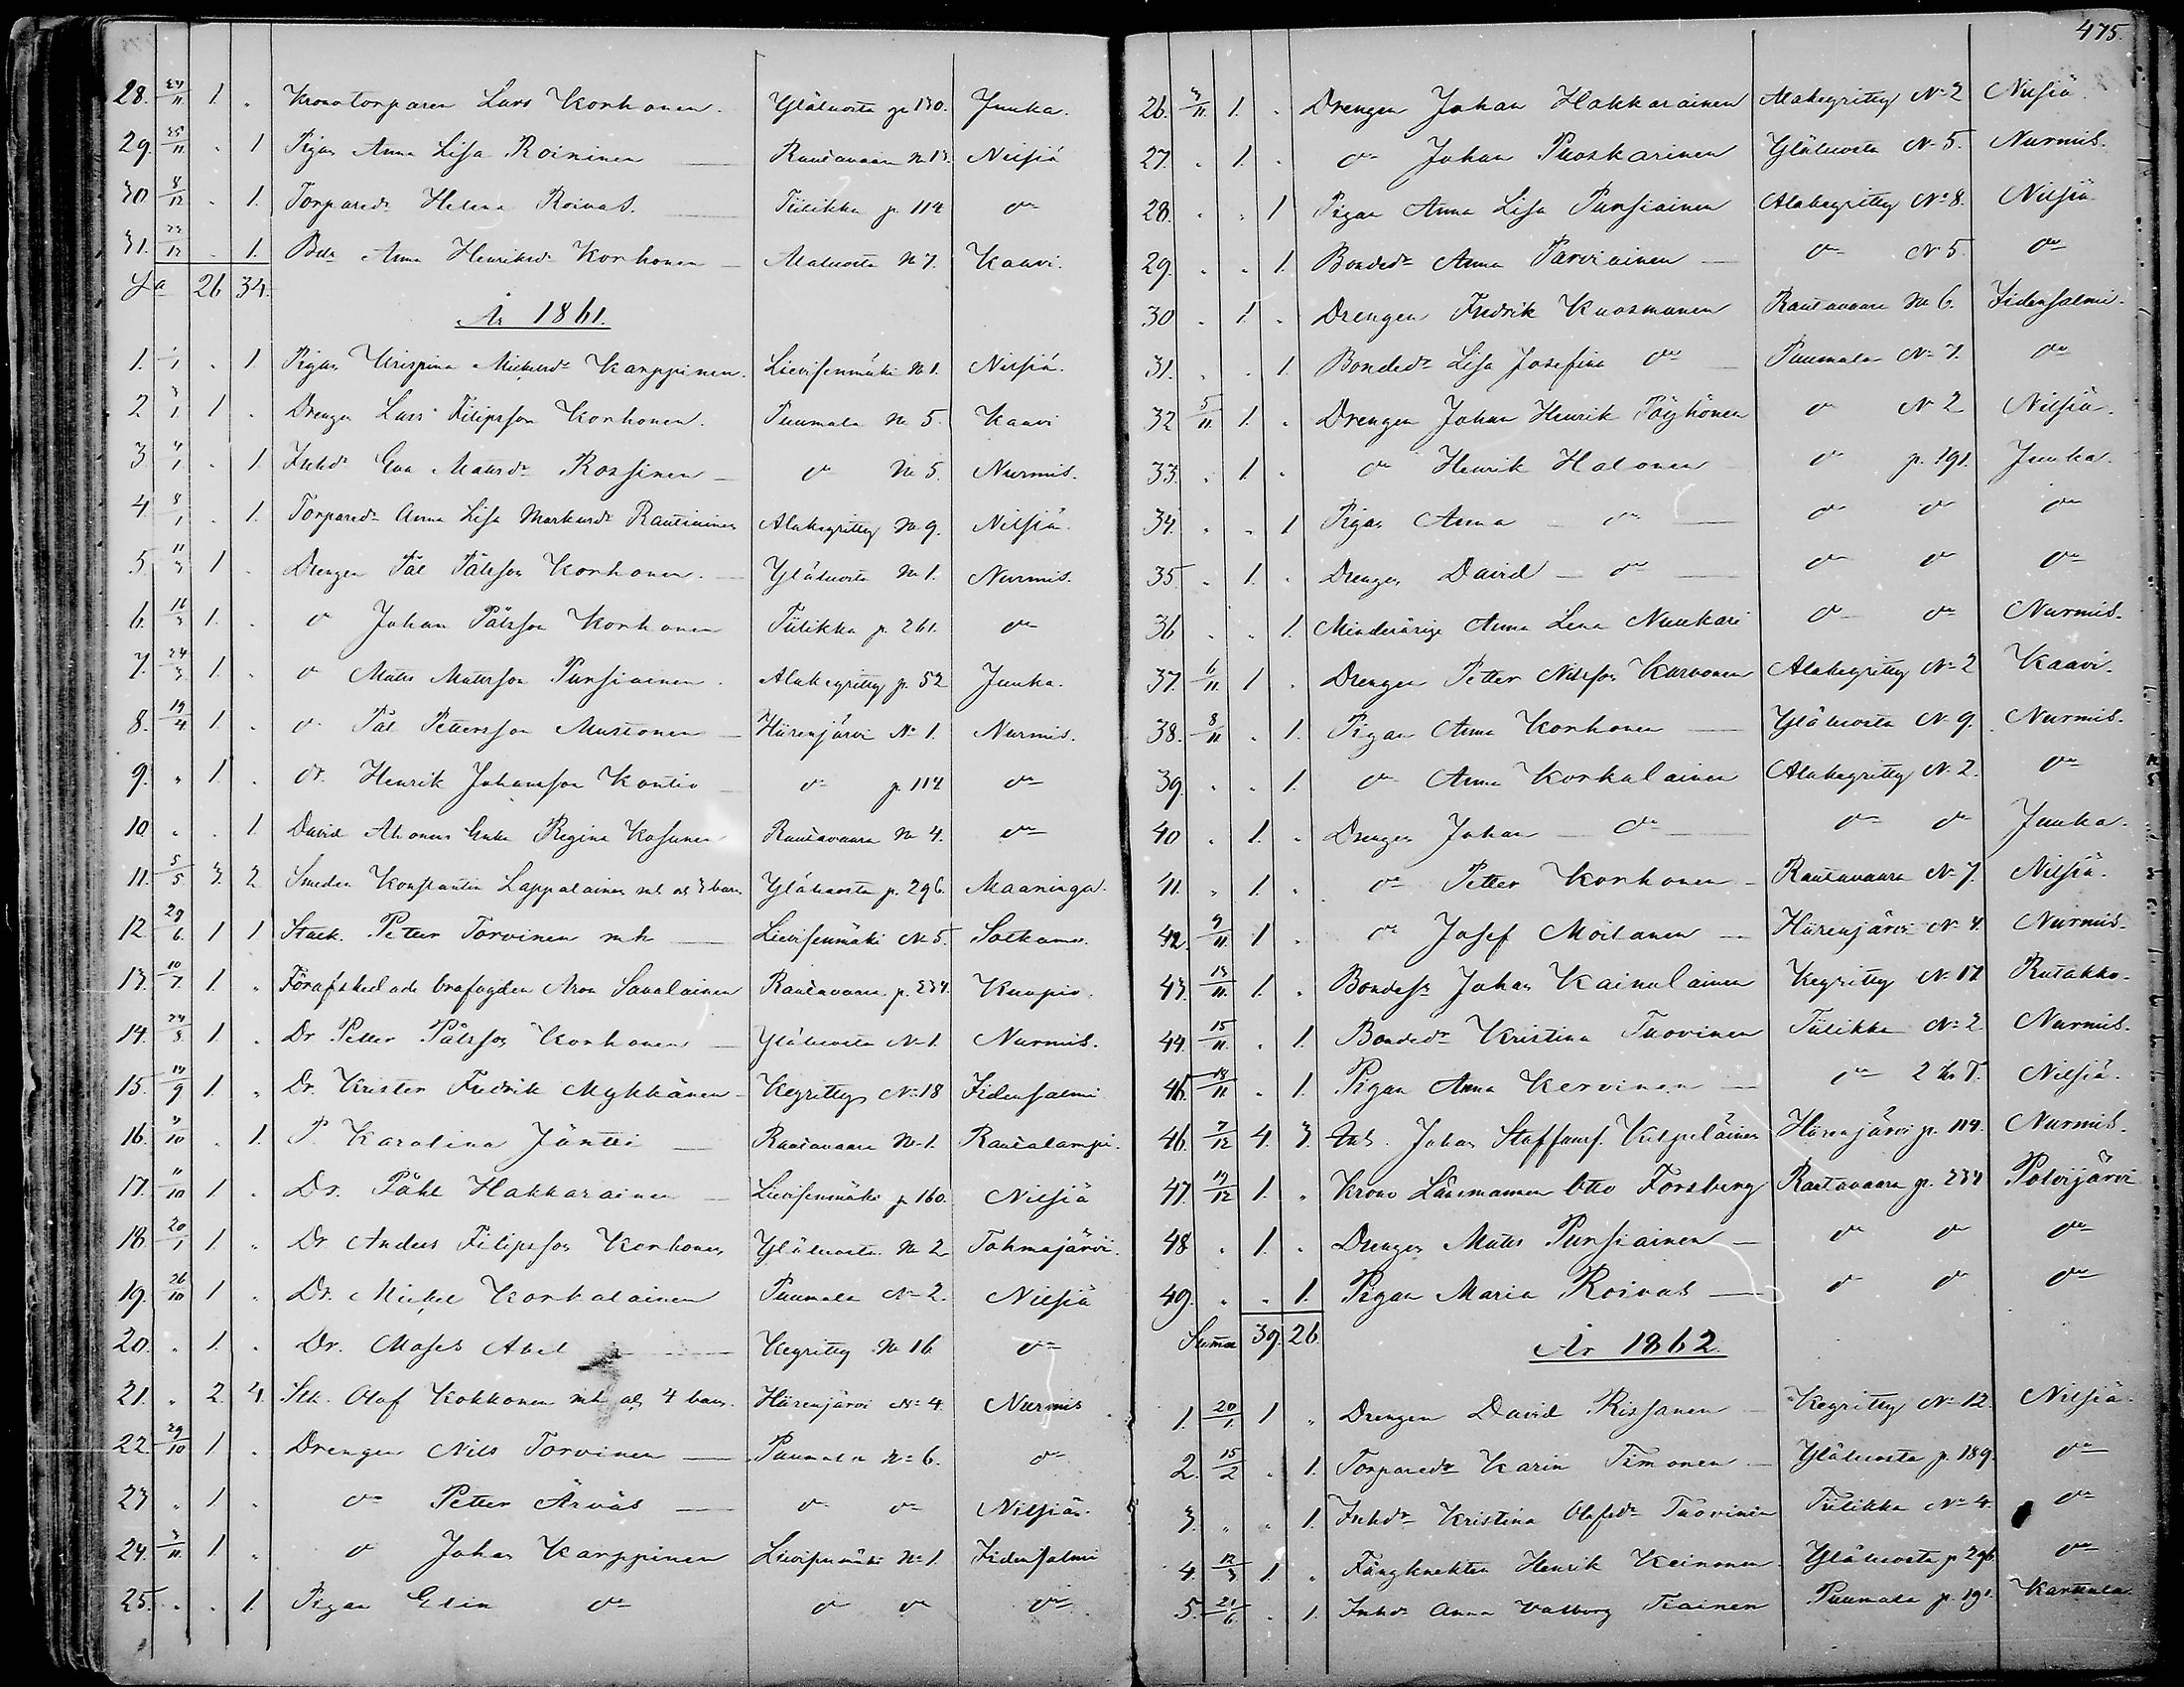 28. 24/11. 1. . Kronotorparen Lars Korhonen. Yläluosta p 130. Juuka.
29. 25/11. . 1 Pigan Anna Lisa Roininen Rautavaara N 13. Nilsiä
30 8/12 . 1. Torpared:r Helena Roivas. Tiilikka p. 114 d:o
31. 23/12 . 1. Bdr Anna Henriksd:r Korhonen Alaluosta N 7. Kaavi.
S:a 26 34.
År 1861.
1. 1/1 . 1. Pigan Krispina Mickelsd:r Karppinen. Lievisenmäki N 1. Nilsiä.
2 3/1 1 . Drengen Lars Filipsson Korhonen. Puumala N 5. Kaavi
3 4/1 . 1. Inhd:r Eva Matsd:r Rossinen d:o N 5. Nurmis.
4 8/1 . 1. Torpared:r Anna Lisa Markusd:r Rautiainen Alakegritty N 9. Nilsiä.
5. 11/3 1 . Drengen Pål Pålsson Korhonen. Ylälucsta N 1. Nurmis.
6. 16/3 1. . d:o Johan Pålsson Korhonen Tiilikka p. 261. d:o
7. 24/3. 1. . d:o Mats Matsson Pursiainen. Alakegritty p. 52 Juuka.
8. 19/4 1. . d:o Pål Pettersson Mustonen Hiirenjärvi N 1. Nurmis.
9. " 1. . d:r. Henrik Johansson Kontio d:o p. 114 d:o
10 . . 1. David Ahonens Enka Regina Kosunen Rautavaara N 4. d:o
11. 5/5. 3. 2 Smeden Konstantin Lappalainen mh o 3 barn Ylälucsta p. 296. Maaninga.
12. 29/6. 1 1 Stack. Petter Torvinen mh Lievisenmäki N 5. Sotkamo.
13. 10/7. 1 " Förafskedade brofogden Aron Savolainen Rautavaara p. 234. Kuopio.
14. 24/8. 1 . Dr Petter Pålsson Korhonen Yläluosta N 1. Nurmis.
15. 14/9 1. " Dr. Krister Fredrik Mykkänen Kegritty N 18 Idensalmi
16. 9/10 . 1. P. Karolina Jäntti Rautavaara N 1. Rautalampi.
17. 11/10 1 . Dr. Påhl Hakkarainen Lievisenmäki p 160. Nilsiä
18. 20/1 1. " Dr. Anders Filipsson Korhonen Yläluosta N 2 Tohmajärvi.
19. 26/10 1 . Dr. Mickel Korkalainen Puumala N 2. Nilsiä
20. . 1. . Dr. Moses Abel Kegritty N 16 d:o
21. " 2. 4. Stk. Olof Kokkonen mh o 4 barn. Hiirenjärvi N 4. Nurmis
22. 29/10 1 . Drengen Nils Torvinen Puumala N 6. d:o
23 " 1 . d:o Petter Ärväs d:o d:o Nilsiä.
24. 3/11. 1. " d:o Johan Karppinen Lievisenmäki N 1. Idensalmi
25. . . 1. Pigan Elin d:o d:o d:o d:o
475.
26. 3/11. 1. . Drengen Johan Hakkarainen Alakegritty N 2 Nilsiä.
27. . 1. . d:o Johan Puoskarinen Yläluosta N 5. Nurmis.
28. . . 1 Pigan Anna Lisa Pursiainen Alakegritty N 8. Nilsiä
29. . . 1. Bonded:r Anna Parviainen d:o N 5. d:o
30 . 1. . Drengen Fredrik Kuosmanen Rautavaara N 6. Idensalmi.
31. . . 1. Bonded:r Lisa Josefina d:o Puumala N 7. d:o
32 5/11. 1. . Drengen Johan Henrik Pöyhönen d:o N 2 Nilsiä.
33. . 1. . d:o Henrik Halonen d:o p. 191. Juuka.
34. . . 1 Pigan Anna d:o d:o d:o d:o
35. . 1. . Drengen David d:o d:o d:o d:o
36 . . 1. Minderårige Anna Lena d:o d:o Nurmis.
37. 6/11. 1 . Drengen Petter Nilsson Karvonen Alakegritty N 2 Kaavi.
38. 8/11 . 1. Pigan Anna Korhonen Yläluosta N 9. Nurmis.
39. . . 1. d:o Anna Korkalainen Alakegritty N 2. d:o
40 . 1. . Drengen Johan d:o d:o d:o Juuka.
41. " 1. . d:o Petter Korhonen Rautavaara N 7. Nilsiä.
42. 9/11 1 . d:o Josef Moilanen Hiirenjärvi N 4. Nurmis.
43. 13/11. 1. . Bondes. Johan Kainulainen Kegritty N 17 Rutakko.
44. 15/11. . 1. Bonded:r Kristina Tuovinen Tiilikka N 2 Nurmis.
45. 18/11. . 1. Pigan Anna Kervinen d:o 2 Kr T. Nilsiä.
46. 7/12 4. 3. Inh. Johan Staffanss. Kilpeläinen Hiirenjärvi p. 114. Nurmis.
47. 19/12 1. " Krono Länsmannen Otto Forsberg Rautavaara p. 234 Polvijärvi
48 . 1. . Drengen Mats Pursiainen d:o d:o d:o
49. . . 1. Pigan Maria Roivas d:o d:o d:o
Summa 39. 26.
År 1862.
1. 20/1. 1 " Drengen David Rissanen Kegritty N 12. Nilsiä.
2. 15/2 . 1. Torpared:r Karin Timonen Yläluosta p. 189. d:o
3. " " 1. Inhd:r Kristina Olofsd:r Tuovinen Tiilikka N 4. d:o
4. 12/3 1. " Fångknekten Henrik Keinonen Yläluosta p 296. d:o
5. 21/6. . 1. Inhd:r Anna Valborg Puumala p. 191. Karttula